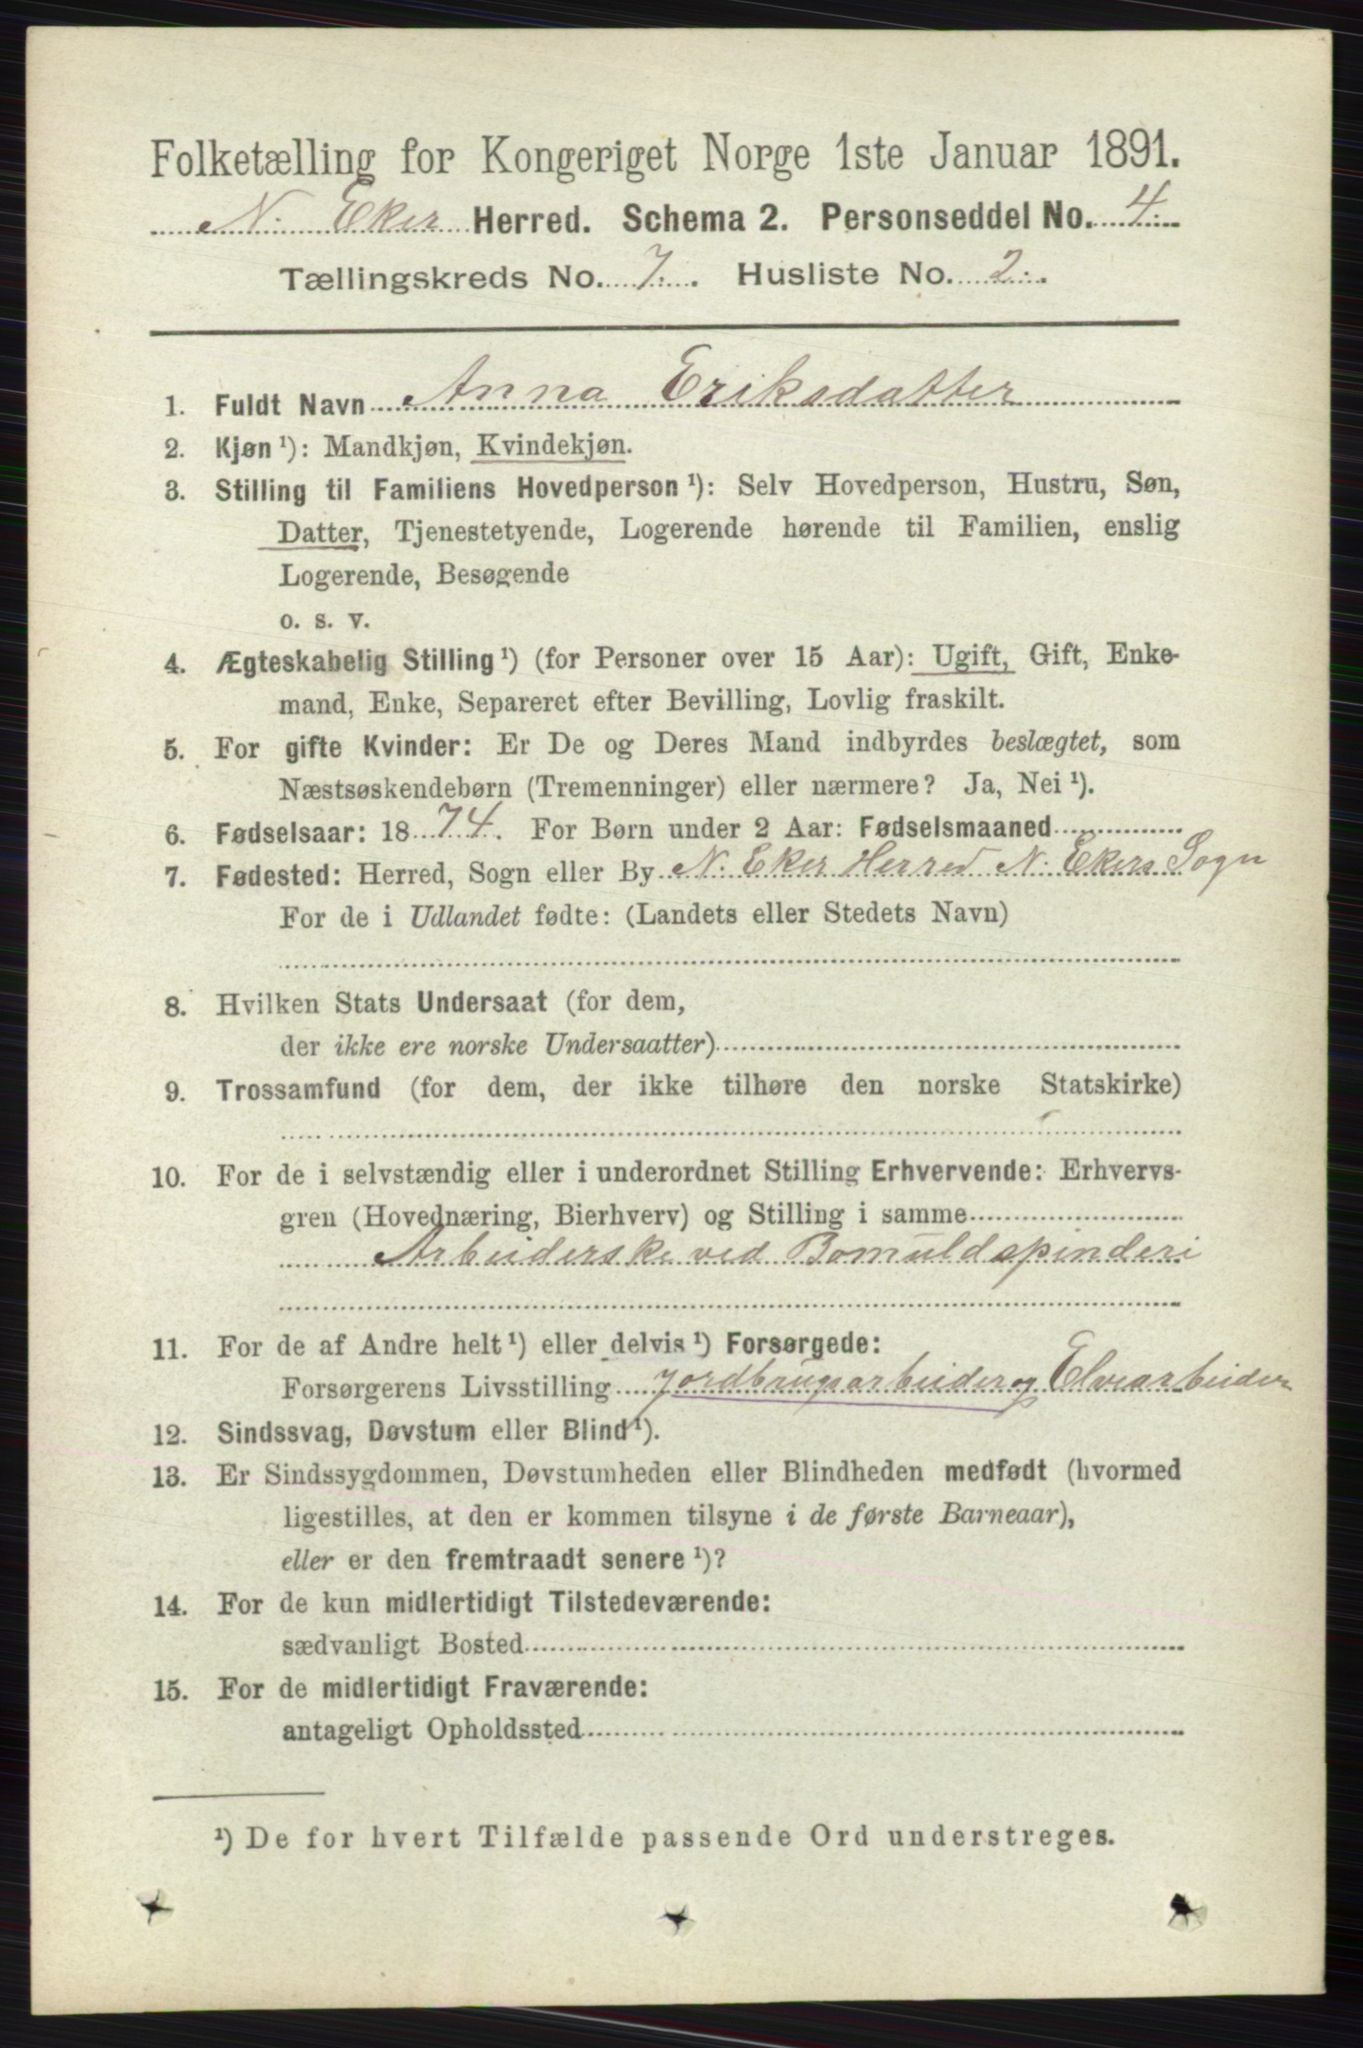 Folketælling for Kongeriget Norge 1ste Januar 1891.
N. Eker Herred. Schema 2. Personseddel No. 4.
Tællingskreds No. 7. Husliste No. 2.
1. Fuldt Navn Anna Eriksdatter
2. Kjøn ¹): Mandkjøn, Kvindekjøn.
3. Stilling til Familiens Hovedperson ¹): Selv Hovedperson, Hustru, Søn,
Datter, Tjenestetyende, Logerende hørende til Familien, enslig
Logerende, Besøgende
o. s. v.
4. Ægteskabelig Stilling ¹) (for Personer over 15 Aar): Ugift, Gift, Enke-
mand, Enke, Separeret efter Bevilling, Lovlig fraskilt.
5. For gifte Kvinder: Er De og Deres Mand indbyrdes beslægtet, som
Næstsøskendebørn (Tremenninger) eller nærmere? Ja, Nei ¹).
6. Fødselsaar: 1874. For Børn under 2 Aar: Fødselsmaaned
7. Fødested: Herred, Sogn eller By N. Eker Herred N. Ekers Sogn
For de i Udlandet fødte: (Landets eller Stedets Navn)
8. Hvilken Stats Undersaat (for dem,
der ikke ere norske Undersaatter)
9. Trossamfund (for dem, der ikke tilhøre den norske Statskirke)
10. For de i selvstændig eller i underordnet Stilling Erhvervende: Erhvervs-
gren (Hovednæring, Bierhverv) og Stilling i samme
Arbeiderske ved Bomuldspinderi
11. For de af Andre helt ¹) eller delvis ¹) Forsørgede:
Forsørgerens Livsstilling Jordbrugsarbeider og Elvearbeider
12. Sindssvag, Døvstum eller Blind ¹).
13. Er Sindssygdommen, Døvstumheden eller Blindheden medfødt (hvormed
ligestilles, at den er kommen tilsyne i de første Barneaar),
eller er den fremtraadt senere ¹)?
14. For de kun midlertidigt Tilstedeværende:
sædvanligt Bosted
15. For de midlertidigt Fraværende:
antageligt Opholdssted
¹) De for hvert Tilfælde passende Ord understreges.